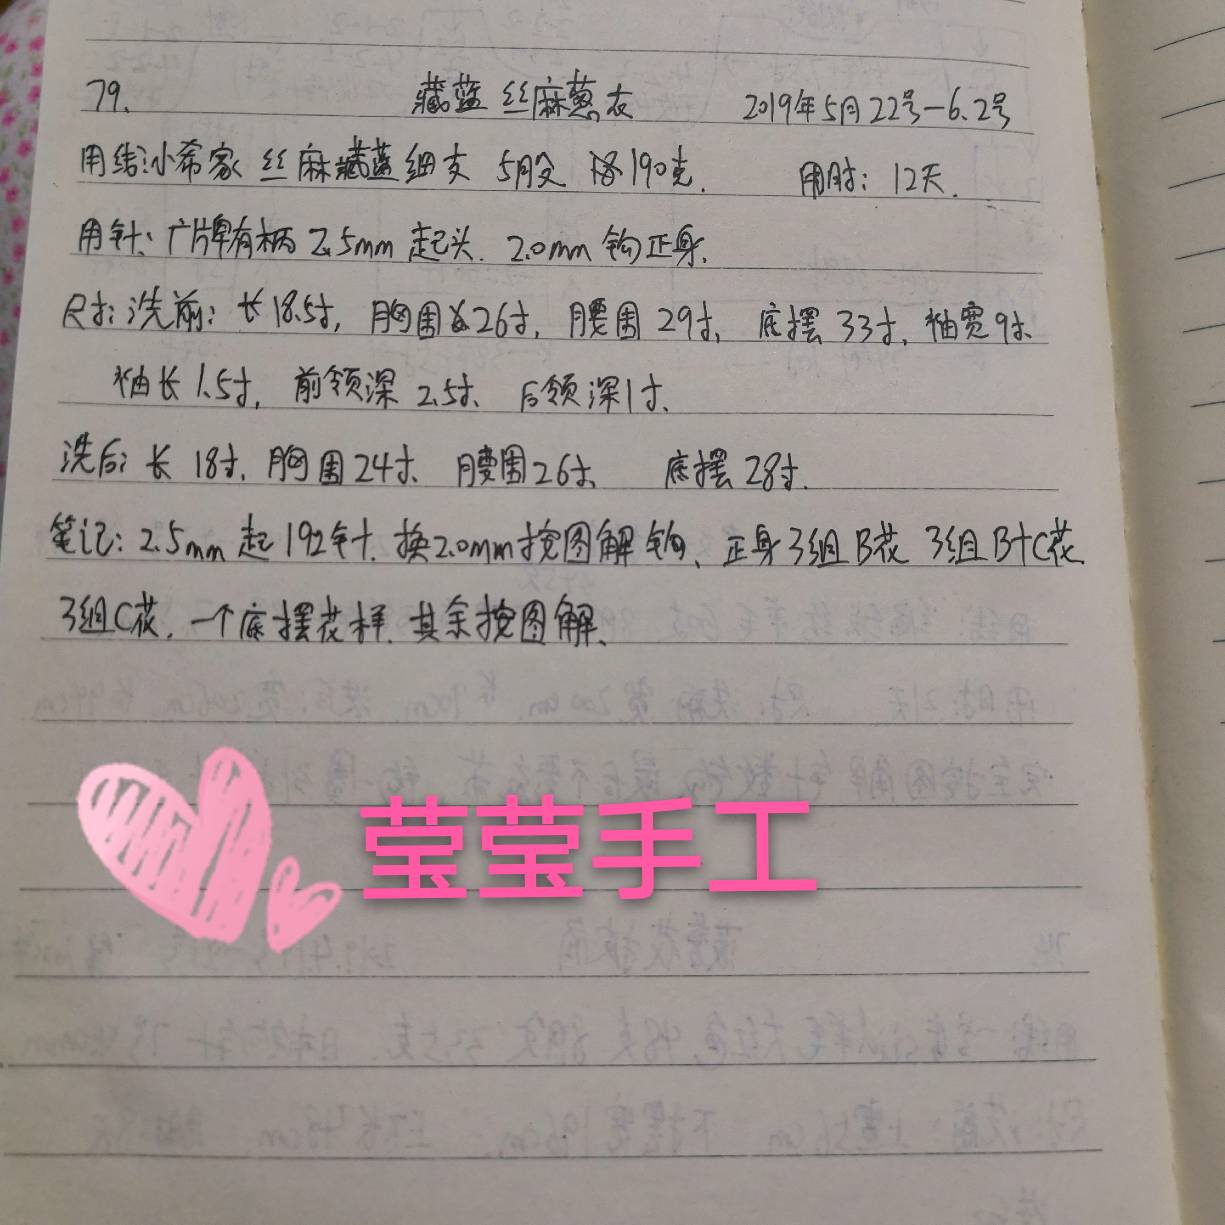 79. 藏蓝丝麻葱衣 2019年5月22号-6.2号
用线:小希家 丝麻藏蓝细支 5股 190克. 用时: 12天.
用针、广牌有柄 2.5mm 起头. 2.0mm 钩正身.
尺寸: 洗前: 长18.5寸, 胸围26寸, 腰围29寸, 底摆33寸, 袖宽9寸
袖长1.5寸, 前领深2.5寸、后领深1寸、
洗后: 长18寸, 胸围24寸、腰围26寸、底摆28寸.
笔记: 2.5mm起192针. 换2.0mm按图解钩、正身3组B花 3组B+C花
3组C花, 一个底摆花样. 其余按图解、
莹莹手工